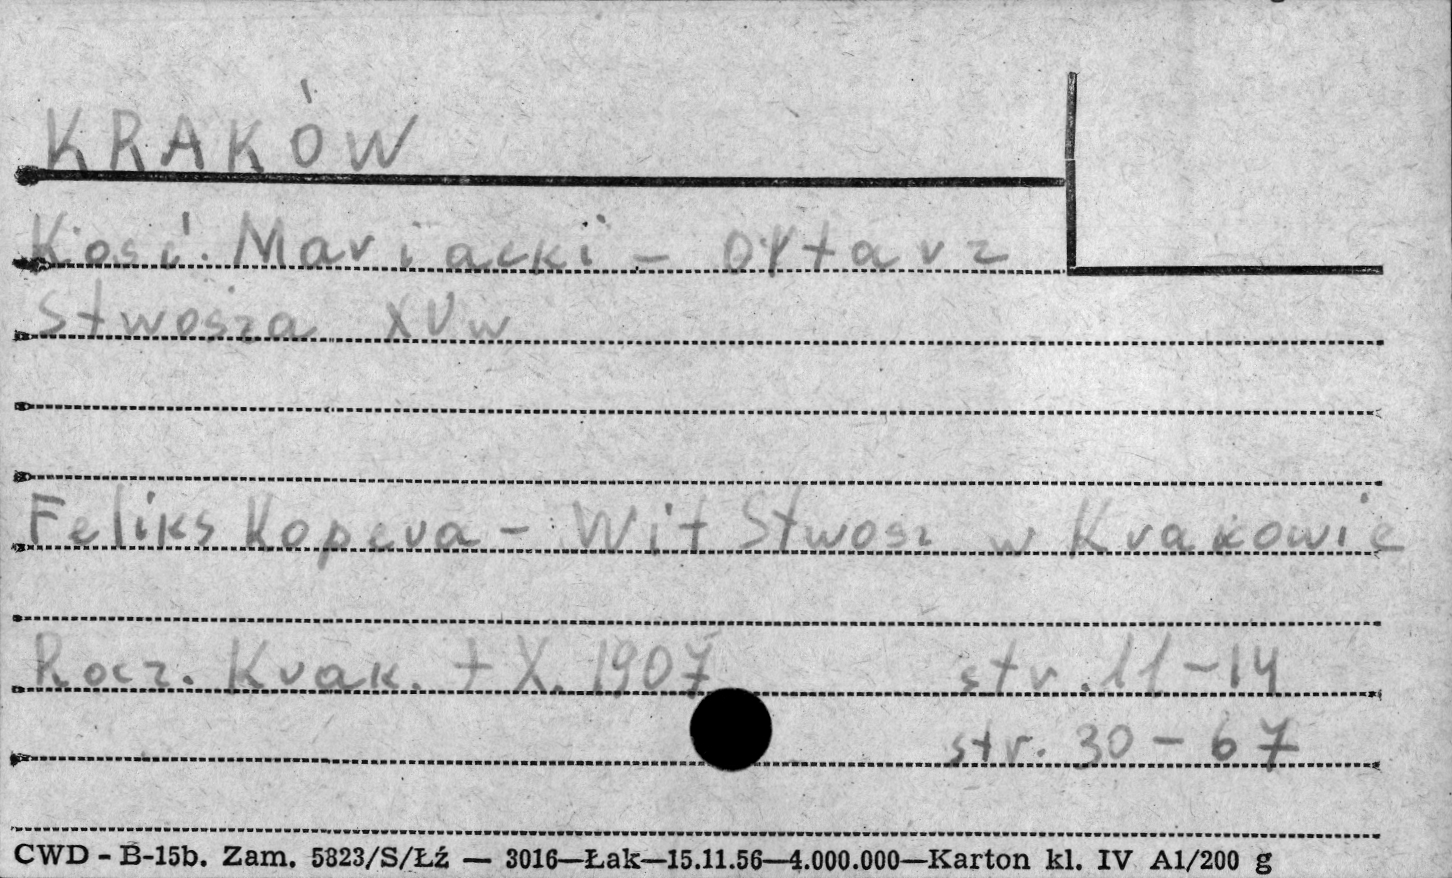 KRAKÓW
Kość. Mariacki – ołtarz
Stwosza XV w
Feliks Kopera – Wit Stwosz w Krakowie
Rocz. Krak. t X. 1907 str. 11–14
str. 30–67
CWD - B-15b. Zam. 5823/S/Łź — 3016—Łak—15.11.56—4.000.000—Karton kl. IV A1/200 g